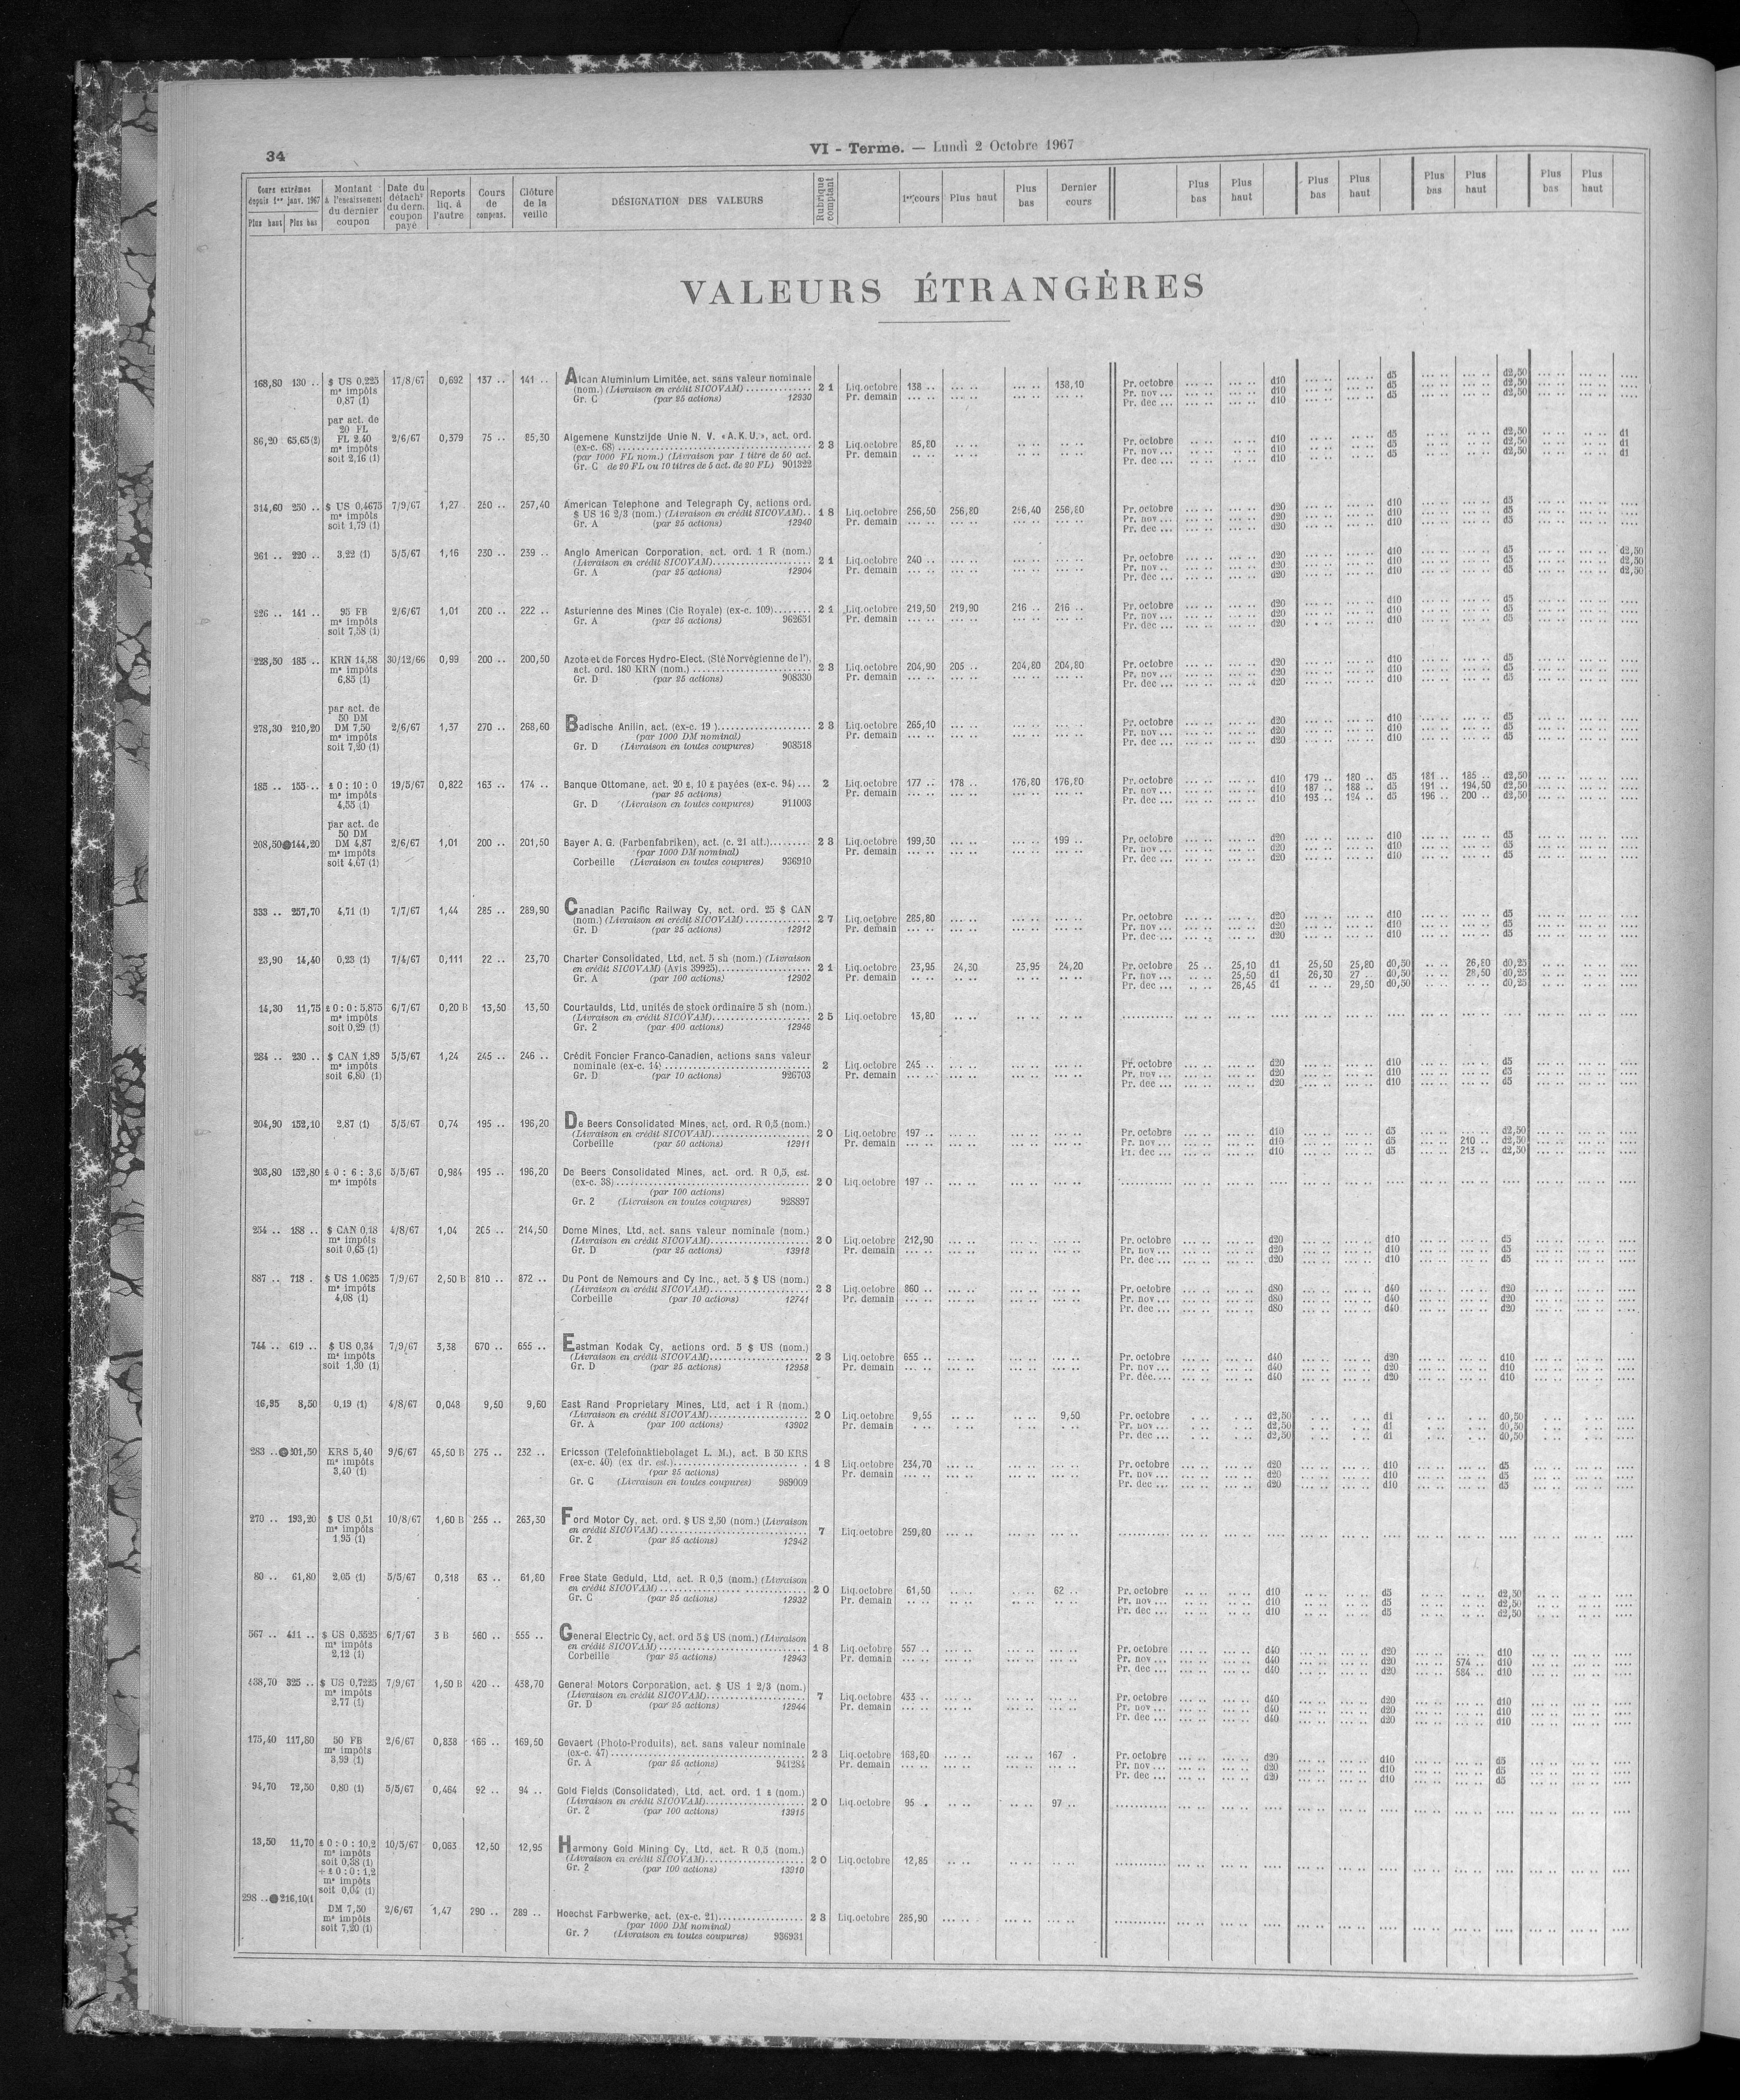 34
VI - Terme. — Lundi 2 Octobre 1967
Cours extrêmes depuis 1er janv. 1967 Plus haut Plus bas | Montant à l'encaissement du dernier coupon | Date du détacht du dern. coupon payé | Reports liq. à l'autre | Cours de compens. | Clôture de la veille | DÉSIGNATION DES VALEURS | Rubrique comptant | 1er cours | Plus haut | Plus bas | Dernier cours | Plus bas | Plus haut | Plus bas | Plus haut | Plus bas | Plus haut | Plus bas | Plus haut
VALEURS ÉTRANGÈRES
168,80 130 .. $ US 0,225 17/8/67 0,692 137 .. 141 .. Alcan Aluminium Limitée, act. sans valeur nominale
ms impôts (nom.) (Livraison en crédit SICOVAM) 21 Liq. octobre 138 .. 138,10 Pr. octobre d10 d5 d2,50
0,87 (1) Gr. C (par 25 actions) 12930 Pr. demain Pr. nov ... d10 d5 d2,50
Pr. dec ... d10 d5 d2,50
par act. de
20 FL
86,20 65,65(2) FL 2,40 2/6/67 0,379 75 .. 85,30 Algemene Kunstzijde Unie N. V. «A.K.U.», act. ord.
ms impôts (ex-c. 68) 23 Liq. octobre 85,80 Pr. octobre d10 d5 d2,50 d1
soit 2,16 (1) (par 1000 FL nom.) (Livraison par 1 titre de 50 act. Pr. demain Pr. nov ... d10 d5 d2,50 d1
Gr. C de 20 FL ou 10 titres de 5 act. de 20 FL) 901322 Pr. dec ... d10 d5 d2,50 d1
314,60 250 .. $ US 0,4675 7/9/67 1,27 260 .. 257,40 American Telephone and Telegraph Cy, actions ord.
ms impôts $ US 16 2/3 (nom.) (Livraison en crédit SICOVAM).. 18 Liq. octobre 256,50 256,80 256,40 256,80 Pr. octobre d20 d10 d5
soit 1,79 (1) Gr. A (par 25 actions) 12940 Pr. demain Pr. nov ... d20 d10 d5
Pr. dec ... d20 d10 d5
261 .. 220 .. 3,22 (1) 5/5/67 1,16 230 .. 239 .. Anglo American Corporation, act. ord. 1 R (nom.)
(Livraison en crédit SICOVAM) 21 Liq. octobre 240 .. Pr. octobre d20 d10 d5 d2,50
Gr. A (par 25 actions) 12904 Pr. demain Pr. nov .. d20 d10 d5 d2,50
Pr. dec ... d20 d10 d5 d2,50
226 .. 141 .. 95 FB 2/6/67 1,01 200 .. 222 .. Asturienne des Mines (Cie Royale) (ex-c. 109) 21 Liq. octobre 219,50 219,90 216 .. 216 .. Pr. octobre d20 d10 d5
ms impôts Gr. A (par 25 actions) 962651 Pr. demain Pr. nov ... d20 d10 d5
soit 7,58 (1) Pr. dec ... d20 d10 d5
228,50 185 .. KRN 14,58 30/12/66 0,99 200 .. 200,50 Azote et de Forces Hydro-Elect. (Sté Norvégienne de l'),
ms impôts act. ord. 180 KRN (nom.) 23 Liq. octobre 204,90 205 .. 204,80 204,80 Pr. octobre d20 d10 d5
6,85 (1) Gr. D (par 25 actions) 908330 Pr. demain Pr. nov ... d20 d10 d5
Pr. dec ... d20 d10 d5
par act. de
50 DM
278,30 210,20 DM 7,50 2/6/67 1,37 270 .. 268,60 Badische Anilin, act. (ex-c. 19) 23 Liq. octobre 265,10 Pr. octobre d20 d10 d5
ms impôts (par 1000 DM nominal) Pr. demain Pr. nov ... d20 d10 d5
soit 7,20 (1) Gr. D (Livraison en toutes coupures) 908518 Pr. dec ... d20 d10 d5
185 .. 155 .. £ 0 : 10 : 0 19/5/67 0,822 163 .. 174 .. Banque Ottomane, act. 20 £, 10 £ payées (ex-c. 94) ... 2 Liq. octobre 177 .. 178 .. 176,80 176,80 Pr. octobre d10 179 .. 180 .. d5 181 .. 185 .. d2,50
ms impôts (par 25 actions) Pr. demain Pr. nov ... d10 187 .. 188 .. d5 191 .. 194,50 d2,50
4,55 (1) Gr. D (Livraison en toutes coupures) 911003 Pr. dec ... d10 193 .. 194 .. d5 196 .. 200 .. d2,50
par act. de
50 DM
208,50 144,20 DM 4,87 2/6/67 1,01 200 .. 201,50 Bayer A. G. (Farbenfabriken), act. (c. 21 att.) 23 Liq. octobre 199,30 199 .. Pr. octobre d20 d10 d5
ms impôts (par 1000 DM nominal) Pr. demain Pr. nov ... d20 d10 d5
soit 4,67 (1) Corbeille (Livraison en toutes coupures) 936910 Pr. dec ... d20 d10 d5
333 .. 257,70 4,71 (1) 7/7/67 1,44 285 .. 289,90 Canadian Pacific Railway Cy, act. ord. 25 $ CAN
(nom.) (Livraison en crédit SICOVAM) 27 Liq. octobre 285,80 Pr. octobre d20 d10 d5
Gr. D (par 25 actions) 12912 Pr. demain Pr. nov ... d20 d10 d5
Pr. dec ... d20 d10 d5
23,90 14,40 0,23 (1) 7/4/67 0,111 22 .. 23,70 Charter Consolidated, Ltd, act. 5 sh (nom.) (Livraison
en crédit SICOVAM) (Avis 39925) 21 Liq. octobre 23,95 24,30 23,95 24,20 Pr. octobre 25 .. 25,10 d1 25,50 25,80 d0,50 26,80 d0,25
Gr. A (par 100 actions) 12902 Pr. demain Pr. nov ... 25,50 d1 26,30 27 .. d0,50 28,50 d0,25
Pr. dec ... 26,45 d1 29,50 d0,50 d0,25
14,30 11,75 £ 0 : 0 : 5,875 6/7/67 0,20 B 13,50 13,50 Courtaulds, Ltd, unités de stock ordinaire 5 sh (nom.)
ms impôts (Livraison en crédit SICOVAM) 25 Liq. octobre 13,80
soit 0,29 (1) Gr. 2 (par 400 actions) 12946
284 .. 230 .. $ CAN 1,89 5/5/67 1,24 245 .. 246 .. Crédit Foncier Franco-Canadien, actions sans valeur
ms impôts nominale (ex-c. 14) 2 Liq. octobre 245 .. Pr. octobre d20 d10 d5
soit 6,80 (1) Gr. D (par 10 actions) 926703 Pr. demain Pr. nov ... d20 d10 d5
Pr. dec ... d20 d10 d5
204,90 152,10 2,87 (1) 5/5/67 0,74 195 .. 196,20 De Beers Consolidated Mines, act. ord. R 0,5 (nom.)
(Livraison en crédit SICOVAM) 20 Liq. octobre 197 .. Pr. octobre d10 d5 d2,50
Corbeille (par 50 actions) 12911 Pr. demain Pr. nov ... d10 d5 210 .. d2,50
Pr. dec ... d10 d5 213 .. d2,50
203,80 152,80 £ 0 : 6 : 3,6 5/5/67 0,984 195 .. 196,20 De Beers Consolidated Mines, act. ord. R 0,5, est.
ms impôts (ex-c. 38) 20 Liq. octobre 197 ..
(par 100 actions)
Gr. 2 (Livraison en toutes coupures) 928897
254 .. 188 .. $ CAN 0,18 4/8/67 1,04 205 .. 214,50 Dome Mines, Ltd, act. sans valeur nominale (nom.)
ms impôts (Livraison en crédit SICOVAM) 20 Liq. octobre 212,90 Pr. octobre d20 d10 d5
soit 0,65 (1) Gr. D (par 25 actions) 13918 Pr. demain Pr. nov ... d20 d10 d5
Pr. dec ... d20 d10 d5
887 .. 718 . $ US 1,0625 7/9/67 2,50 B 810 .. 872 .. Du Pont de Nemours and Cy Inc., act. 5 $ US (nom.)
ms impôts (Livraison en crédit SICOVAM) 23 Liq. octobre 860 .. Pr. octobre d80 d40 d20
4,08 (1) Corbeille (par 10 actions) 12741 Pr. demain Pr. nov ... d80 d40 d20
Pr. dec ... d80 d40 d20
744 .. 619 .. $ US 0,34 7/9/67 3,38 670 .. 655 .. Eastman Kodak Cy, actions ord. 5 $ US (nom.)
ms impôts (Livraison en crédit SICOVAM) 23 Liq. octobre 655 .. Pr. octobre d40 d20 d10
soit 1,30 (1) Gr. D (par 25 actions) 12958 Pr. demain Pr. nov ... d40 d20 d10
Pr. déc.... d40 d20 d10
16,95 8,50 0,19 (1) 4/8/67 0,048 9,50 9,60 East Rand Proprietary Mines, Ltd, act 1 R (nom.)
(Livraison en crédit SICOVAM) 20 Liq. octobre 9,55 9,50 Pr. octobre d2,50 d1 d0,50
Gr. A (par 100 actions) 13902 Pr. demain Pr. nov ... d2,50 d1 d0,50
Pr. dec ... d2,50 d1 d0,50
283 .. 201,50 KRS 5,40 9/6/67 45,50 B 275 .. 232 .. Ericsson (Telefonaktiebolaget L. M.), act. B 50 KRS
ms impôts (ex-c. 40) (ex dr. est.) 18 Liq. octobre 234,70 Pr. octobre d20 d10 d5
3,40 (1) (par 25 actions) Pr. demain Pr. nov ... d20 d10 d5
Gr. C (Livraison en toutes coupures) 989009 Pr. dec ... d20 d10 d5
270 .. 193,20 $ US 0,51 10/8/67 1,60 B 255 .. 263,30 Ford Motor Cy, act. ord. $ US 2,50 (nom.) (Livraison
ms impôts en crédit SICOVAM) 7 Liq. octobre 259,80
1,95 (1) Gr. 2 (par 25 actions) 12942
80 .. 61,80 2,05 (1) 5/5/67 0,318 63 .. 61,80 Free State Geduld, Ltd, act. R 0,5 (nom.) (Livraison
en crédit SICOVAM) 20 Liq. octobre 61,50 62 .. Pr. octobre d10 d5 d2,50
Gr. C (par 25 actions) 12932 Pr. demain Pr. nov ... d10 d5 d2,50
Pr. dec ... d10 d5 d2,50
567 .. 411 .. $ US 0,5525 6/7/67 3 B 560 .. 555 .. General Electric Cy, act. ord 5 $ US (nom.) (Livraison
ms impôts en crédit SICOVAM) 18 Liq. octobre 557 .. Pr. octobre d40 d20 d10
2,12 (1) Corbeille (par 25 actions) 12943 Pr. demain Pr. nov ... d40 d20 574 .. d10
Pr. dec ... d40 d20 584 .. d10
438,70 325 .. $ US 0,7225 7/9/67 1,50 B 420 .. 438,70 General Motors Corporation, act. $ US 1 2/3 (nom.)
ms impôts (Livraison en crédit SICOVAM) 7 Liq. octobre 433 .. Pr. octobre d40 d20 d10
2,77 (1) Gr. D (par 25 actions) 12944 Pr. demain Pr. nov ... d40 d20 d10
Pr. dec ... d40 d20 d10
175,40 117,80 50 FB 2/6/67 0,838 166 .. 169,50 Gevaert (Photo-Produits), act. sans valeur nominale
ms impôts (ex-c. 47) 23 Liq. octobre 168,80 167 . Pr. octobre d20 d10 d5
3,99 (1) Gr. A (par 25 actions) 941284 Pr. demain Pr. nov ... d20 d10 d5
Pr. dec ... d20 d10 d5
94,70 72,50 0,80 (1) 5/5/67 0,464 92 .. 94 .. Gold Fields (Consolidated), Ltd, act. ord. 1 £ (nom.)
(Livraison en crédit SICOVAM) 20 Liq. octobre 95 . 97 ..
Gr. 2 (par 100 actions) 13915
13,50 11,70 £ 0 : 0 : 10,2 10/5/67 0,063 12,50 12,95 Harmony Gold Mining Cy, Ltd, act. R 0,5 (nom.)
ms impôts (Livraison en crédit SICOVAM) 20 Liq. octobre 12,85
soit 0,38 (1) Gr. 2 (par 100 actions) 13910
+ £ 0 : 0 : 1,2
ms impôts
soit 0,04 (1)
298 .. 216,10(1
DM 7,50 2/6/67 1,47 290 .. 289 .. Hoechst Farbwerke, act. (ex-c. 21) 23 Liq. octobre 285,90
ms impôts (par 1000 DM nominal)
soit 7,20 (1) Gr. 2 (Livraison en toutes coupures) 936931